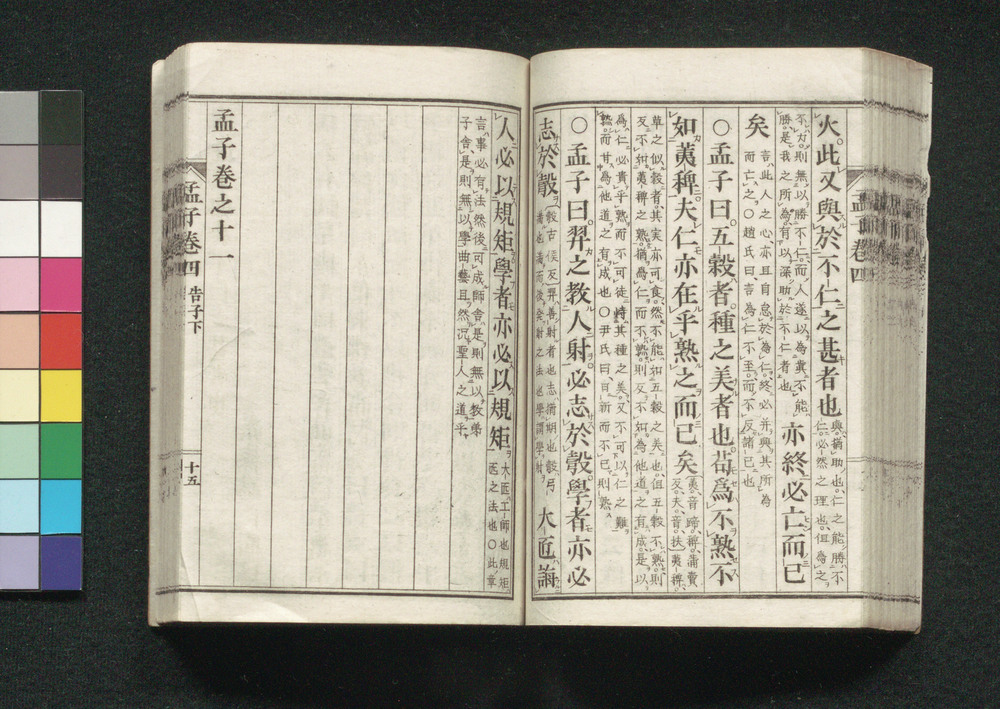 火。此又與於不仁之甚者也
與猶助也。仁之能勝不
仁必然之理也。但為之
不力。則無以勝不仁。而人遂以為真不能
勝。是我之所為有以深助於不仁者也
亦終必亡而已
矣
言此人之心亦且自怠於為仁。終必并與其所為
而亡之〇趙氏曰、言為仁不至。而不反諸己也
〇孟子曰。五穀者種之美者也。苟為不熟。不
如荑稗。夫仁亦在乎熟之而已矣
荑音蹄稗蒲賣
反夫音扶〕荑稗、
草之似穀者。其実亦可食。然不能如五穀之美也。但五穀不熟。則
反不如荑稗之熟。猶為仁而不熟。則反不如為他道之有成。是以
為仁必貴乎熟。而不可徒恃其種之美。又不可以仁之難
熟。而甘為他道之有成也〇尹氏曰、日新而不已。則熟
〇孟子曰羿之教人射。必志於彀。學者亦必
志於彀
彀古侯反〕羿善射者也志猶期也彀弓
滿也滿而後發射之法也學謂學射
大匠誨
人必以規矩。學者亦必以規矩
大匠工師也規矩
匠之法也〇此章
言事必有法然後可成師舍是則無以教弟
子舍是則無以學曲藝且然况聖人之道乎
孟子卷之十一
孟子卷四
告子下
十五
孟子卷四